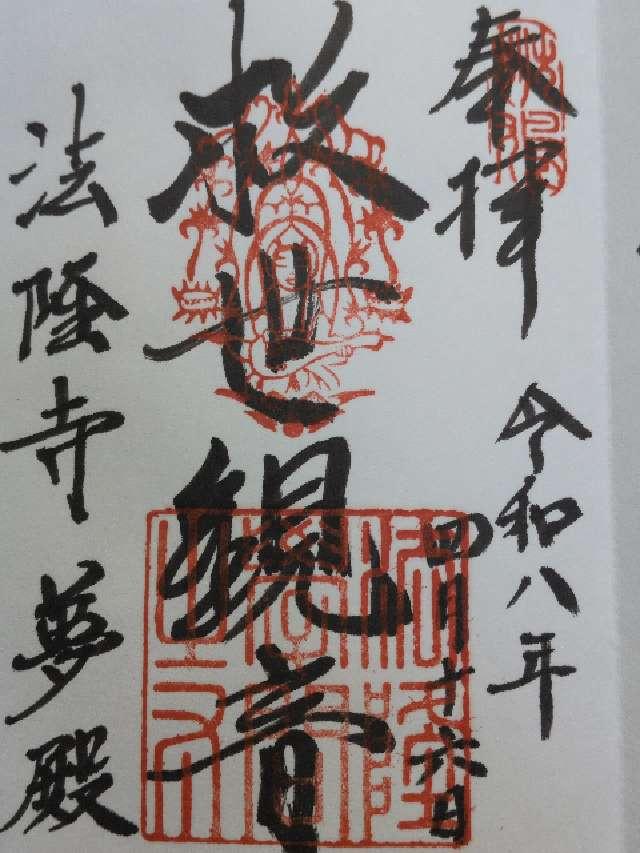 奉拝
令和八年
四月十六日
救世観音
法隆寺夢殿